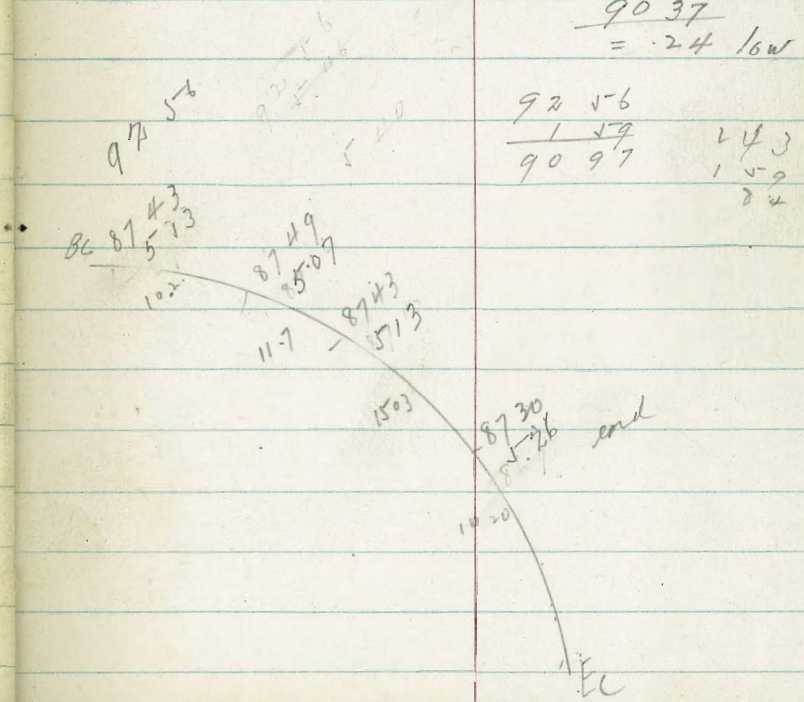 90 37
= .24 low
92 56
1 59
90 97
1 59
84
BC 87 43
5 13
10.2
87 49
5.07
11.7
87 43
513
1503
87 30
5.26 end
10 20
EC